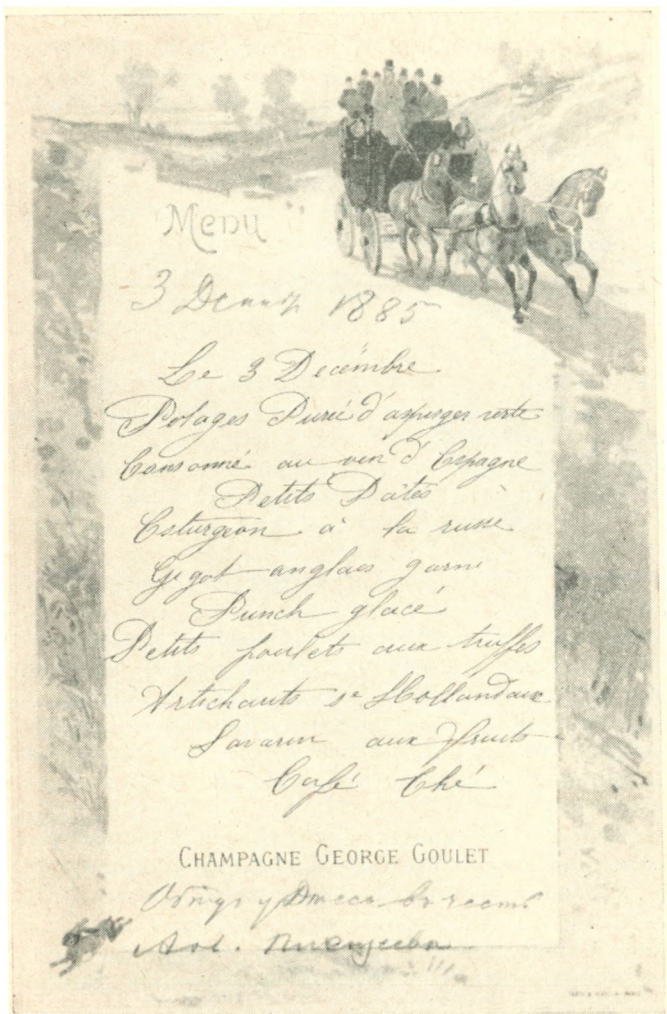 Menu
3 1885
Le 3 Decémbre
Potages Purée d'asperges verte
Consommé au vin d'Espagne
Petits Pâtés
Esturgeon à la russe
Gigot anglaes garni
Punch glacé
Petits poulets aux truffes
Artichauts se Hollandaise
Savarin aux fruits
Café Thé
CHAMPAGNE GEORGE GOULET
у